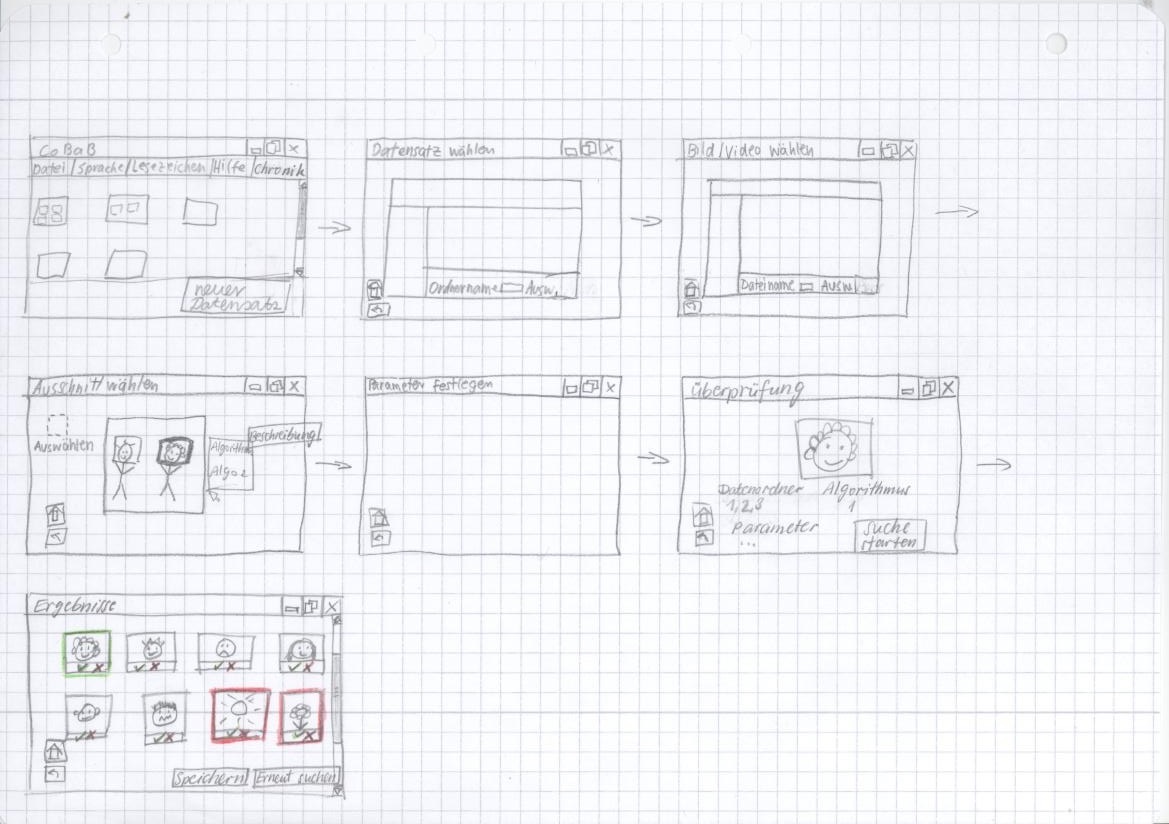 CoBaB
Datei / Sprache / Lesezeichen / Hilfe / Chronik
neuer
Datensatz
Datensatz wählen
Ordnername Ausw.
Bild/Video wählen
Dateiname Ausw.
Ausschnitt wählen
Auswählen
Beschreibung
Algo2
Parameter festlegen
überprüfung
Datenordner
1,2,3
Algorithmus
1
Parameter
...
Suche
starten
Ergebnisse
Speichern
Erneut suchen